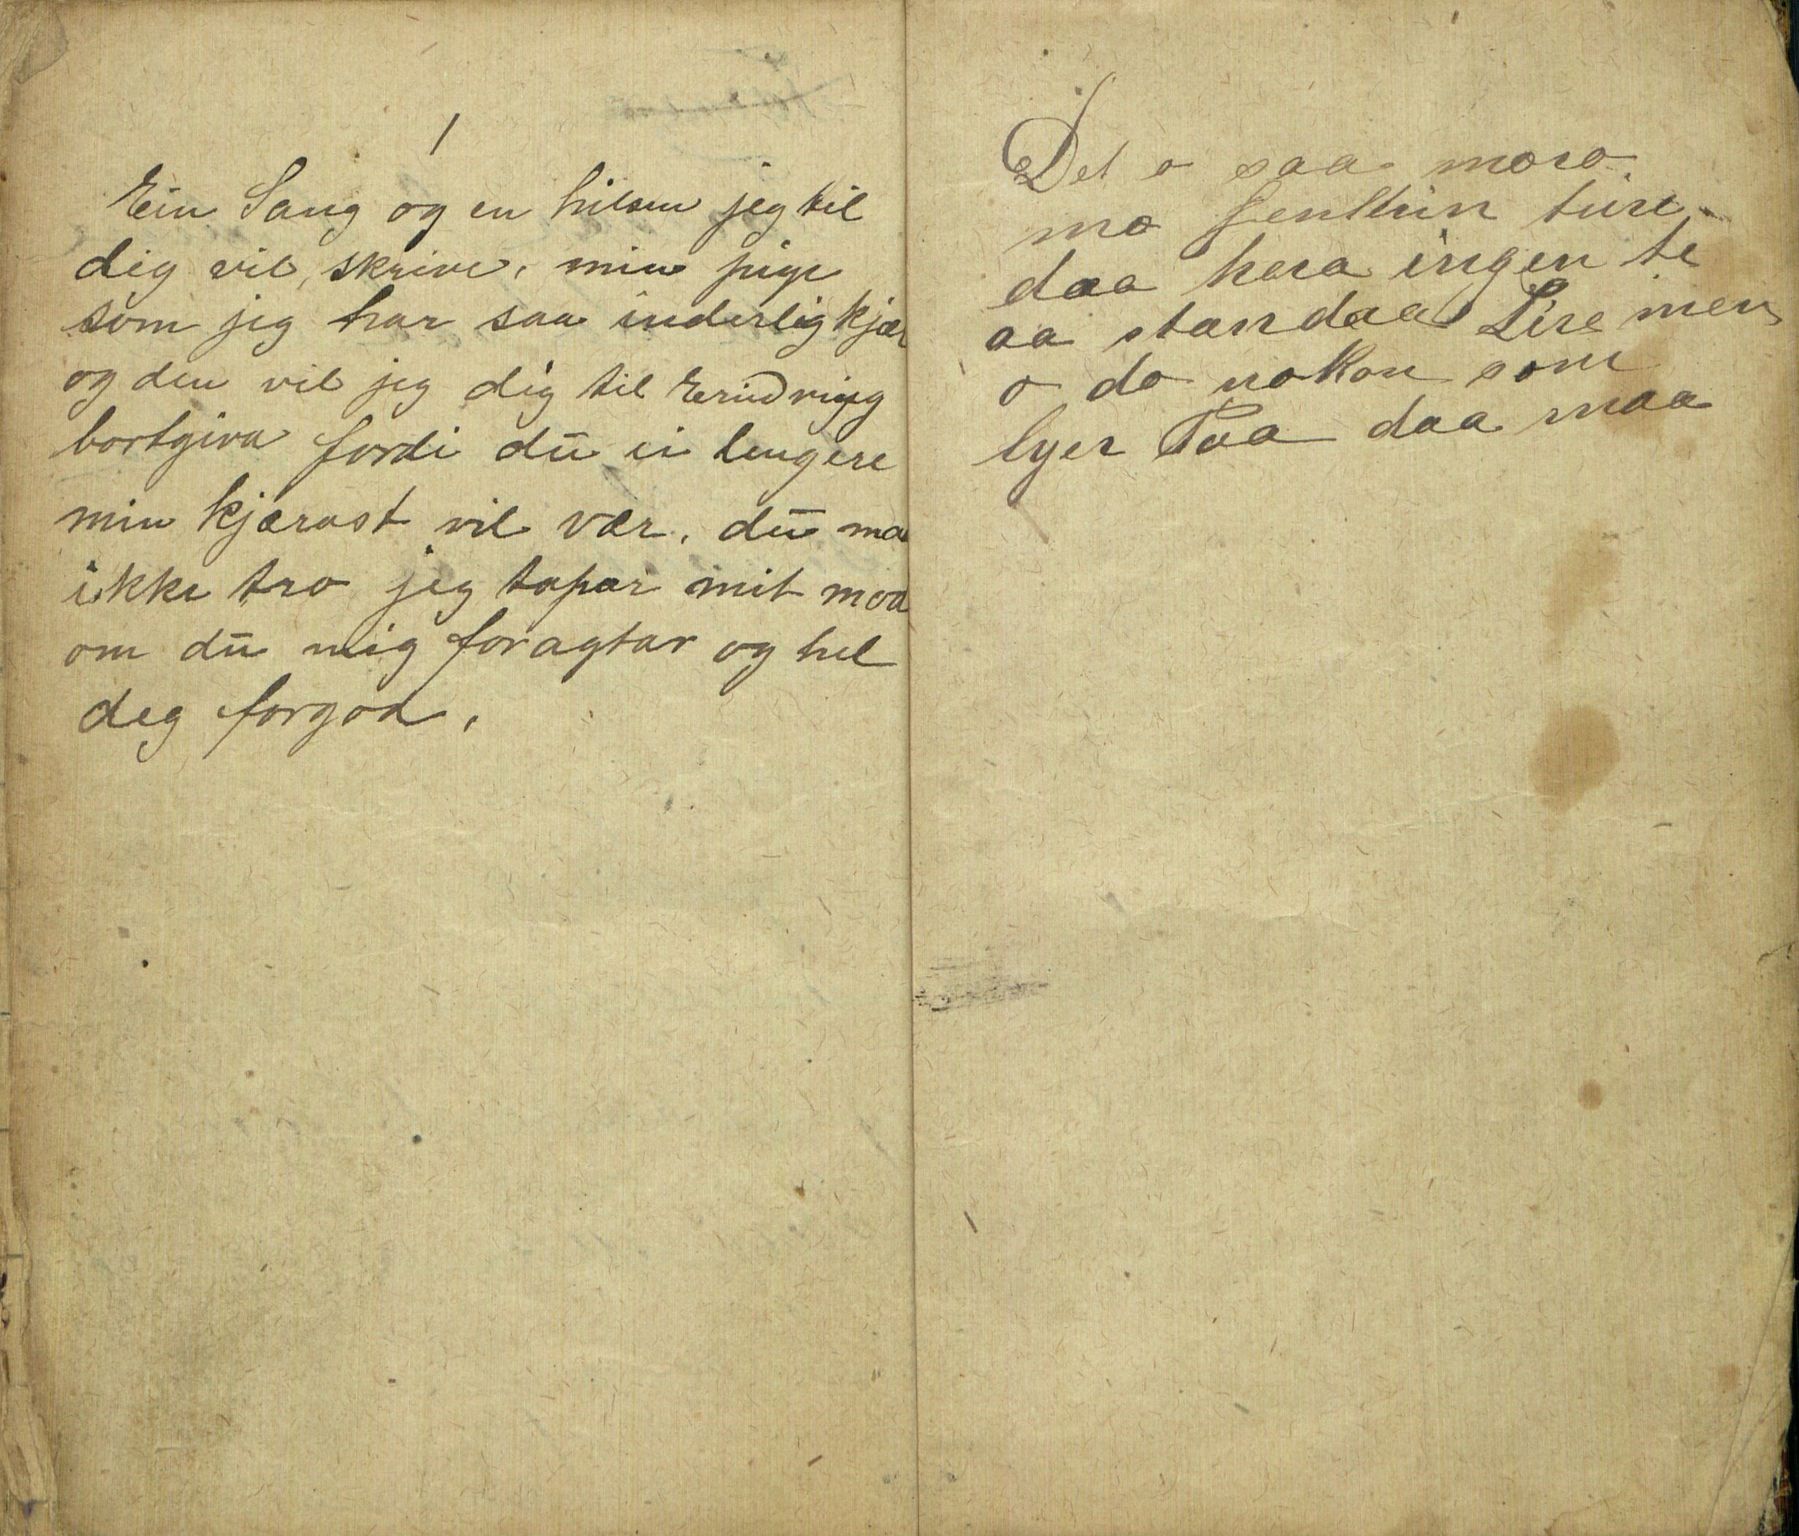 1
Ein Sang og en hilsen jeg til
dig vil skrive, min pige
som jeg har saa inderlig kjær
og den vil jeg dig til Erindring
bortgiva fordi du ei lengere
min kjærast vil vær, du maa
ikke tro jeg tapar mit mod
om du mig foragtar og hel
deg forgod.
Det o saa moro
mo jentun ture
daa hera ingen te
aa standaa Lire men
o do nokon som
lyer Paa daa maa